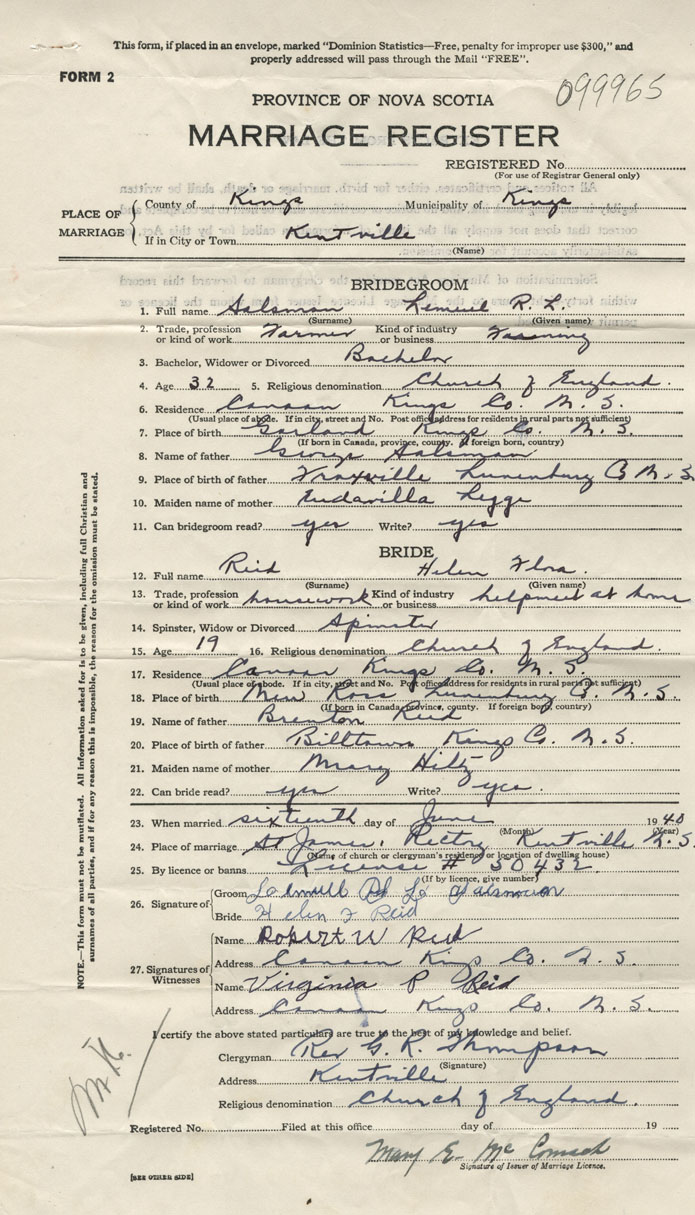 This form, if placed in an envelope, marked "Dominion Statistics—Free, penalty for improper use $300," and
properly addressed will pass through the Mail "FREE".
FORM 2
099965
PROVINCE OF NOVA SCOTIA
MARRIAGE REGISTER
REGISTERED No.
(For use of Registrar General only)
PLACE OF MARRIAGE
County of Kings Municipality of Kings
If in City or Town Kentville
(Name)
BRIDEGROOM
1. Full name Salsman Lemuel R. L.
(Surname) (Given name)
2. Trade, profession or kind of work Farmer Kind of industry or business Farming
3. Bachelor, Widower or Divorced Bachelor
4. Age 32 5. Religious denomination Church of England.
6. Residence Canaan Kings Co. N. S.
(Usual place of abode. If in city, street and No. Post office address for residents in rural parts not sufficient)
7. Place of birth Garland Kings Co. N. S.
(If born in Canada, province, county. If foreign born, country)
8. Name of father George Salsman
9. Place of birth of father Lunenburg Co N. S.
10. Maiden name of mother Legge
11. Can bridegroom read? yes Write? yes
BRIDE
12. Full name Reid Helen Flora.
(Surname) (Given name)
13. Trade, profession or kind of work housework Kind of industry or business helpmeet at home
14. Spinster, Widow or Divorced Spinster
15. Age 19 16. Religious denomination Church of England.
17. Residence Canaan Kings Co. N. S
(Usual place of abode. If in city, street and No. Post office address for residents in rural parts not sufficient)
18. Place of birth New Ross Lunenburg Co. N. S.
(If born in Canada, province, county. If foreign born, country)
19. Name of father Brenton Reid
20. Place of birth of father Billtown Kings Co. N. S.
21. Maiden name of mother Mary Hiltz
22. Can bride read? yes Write? yes.
23. When married sixteenth day of June 1940
(Month) (Year)
24. Place of marriage St James' Rectory Kentville N. S.
(Name of church or clergyman's residence or location of dwelling house)
25. By licence or banns License # 50432.
(If by licence, give number)
26. Signature of
Groom Lemuell R L Salsman
Bride Helen F Reid
27. Signatures of Witnesses
Name Robert W Reid
Address Canaan Kings Co. N. S.
Name Virginia P Reid
Address Canaan Kings Co. N. S.
I certify the above stated particulars are true to the best of my knowledge and belief.
Clergyman Rev G. R. Thompson
(Signature)
Address Kentville
Religious denomination Church of England.
Registered No. Filed at this office day of 19
Mary E. McComsch
Signature of Issuer of Marriage Licence.
[SEE OTHER SIDE]
NOTE.—This form must not be mutilated. All information asked for is to be given, including full Christian and
surnames of all parties, and if for any reason this is impossible, the reason for the omission must be stated.